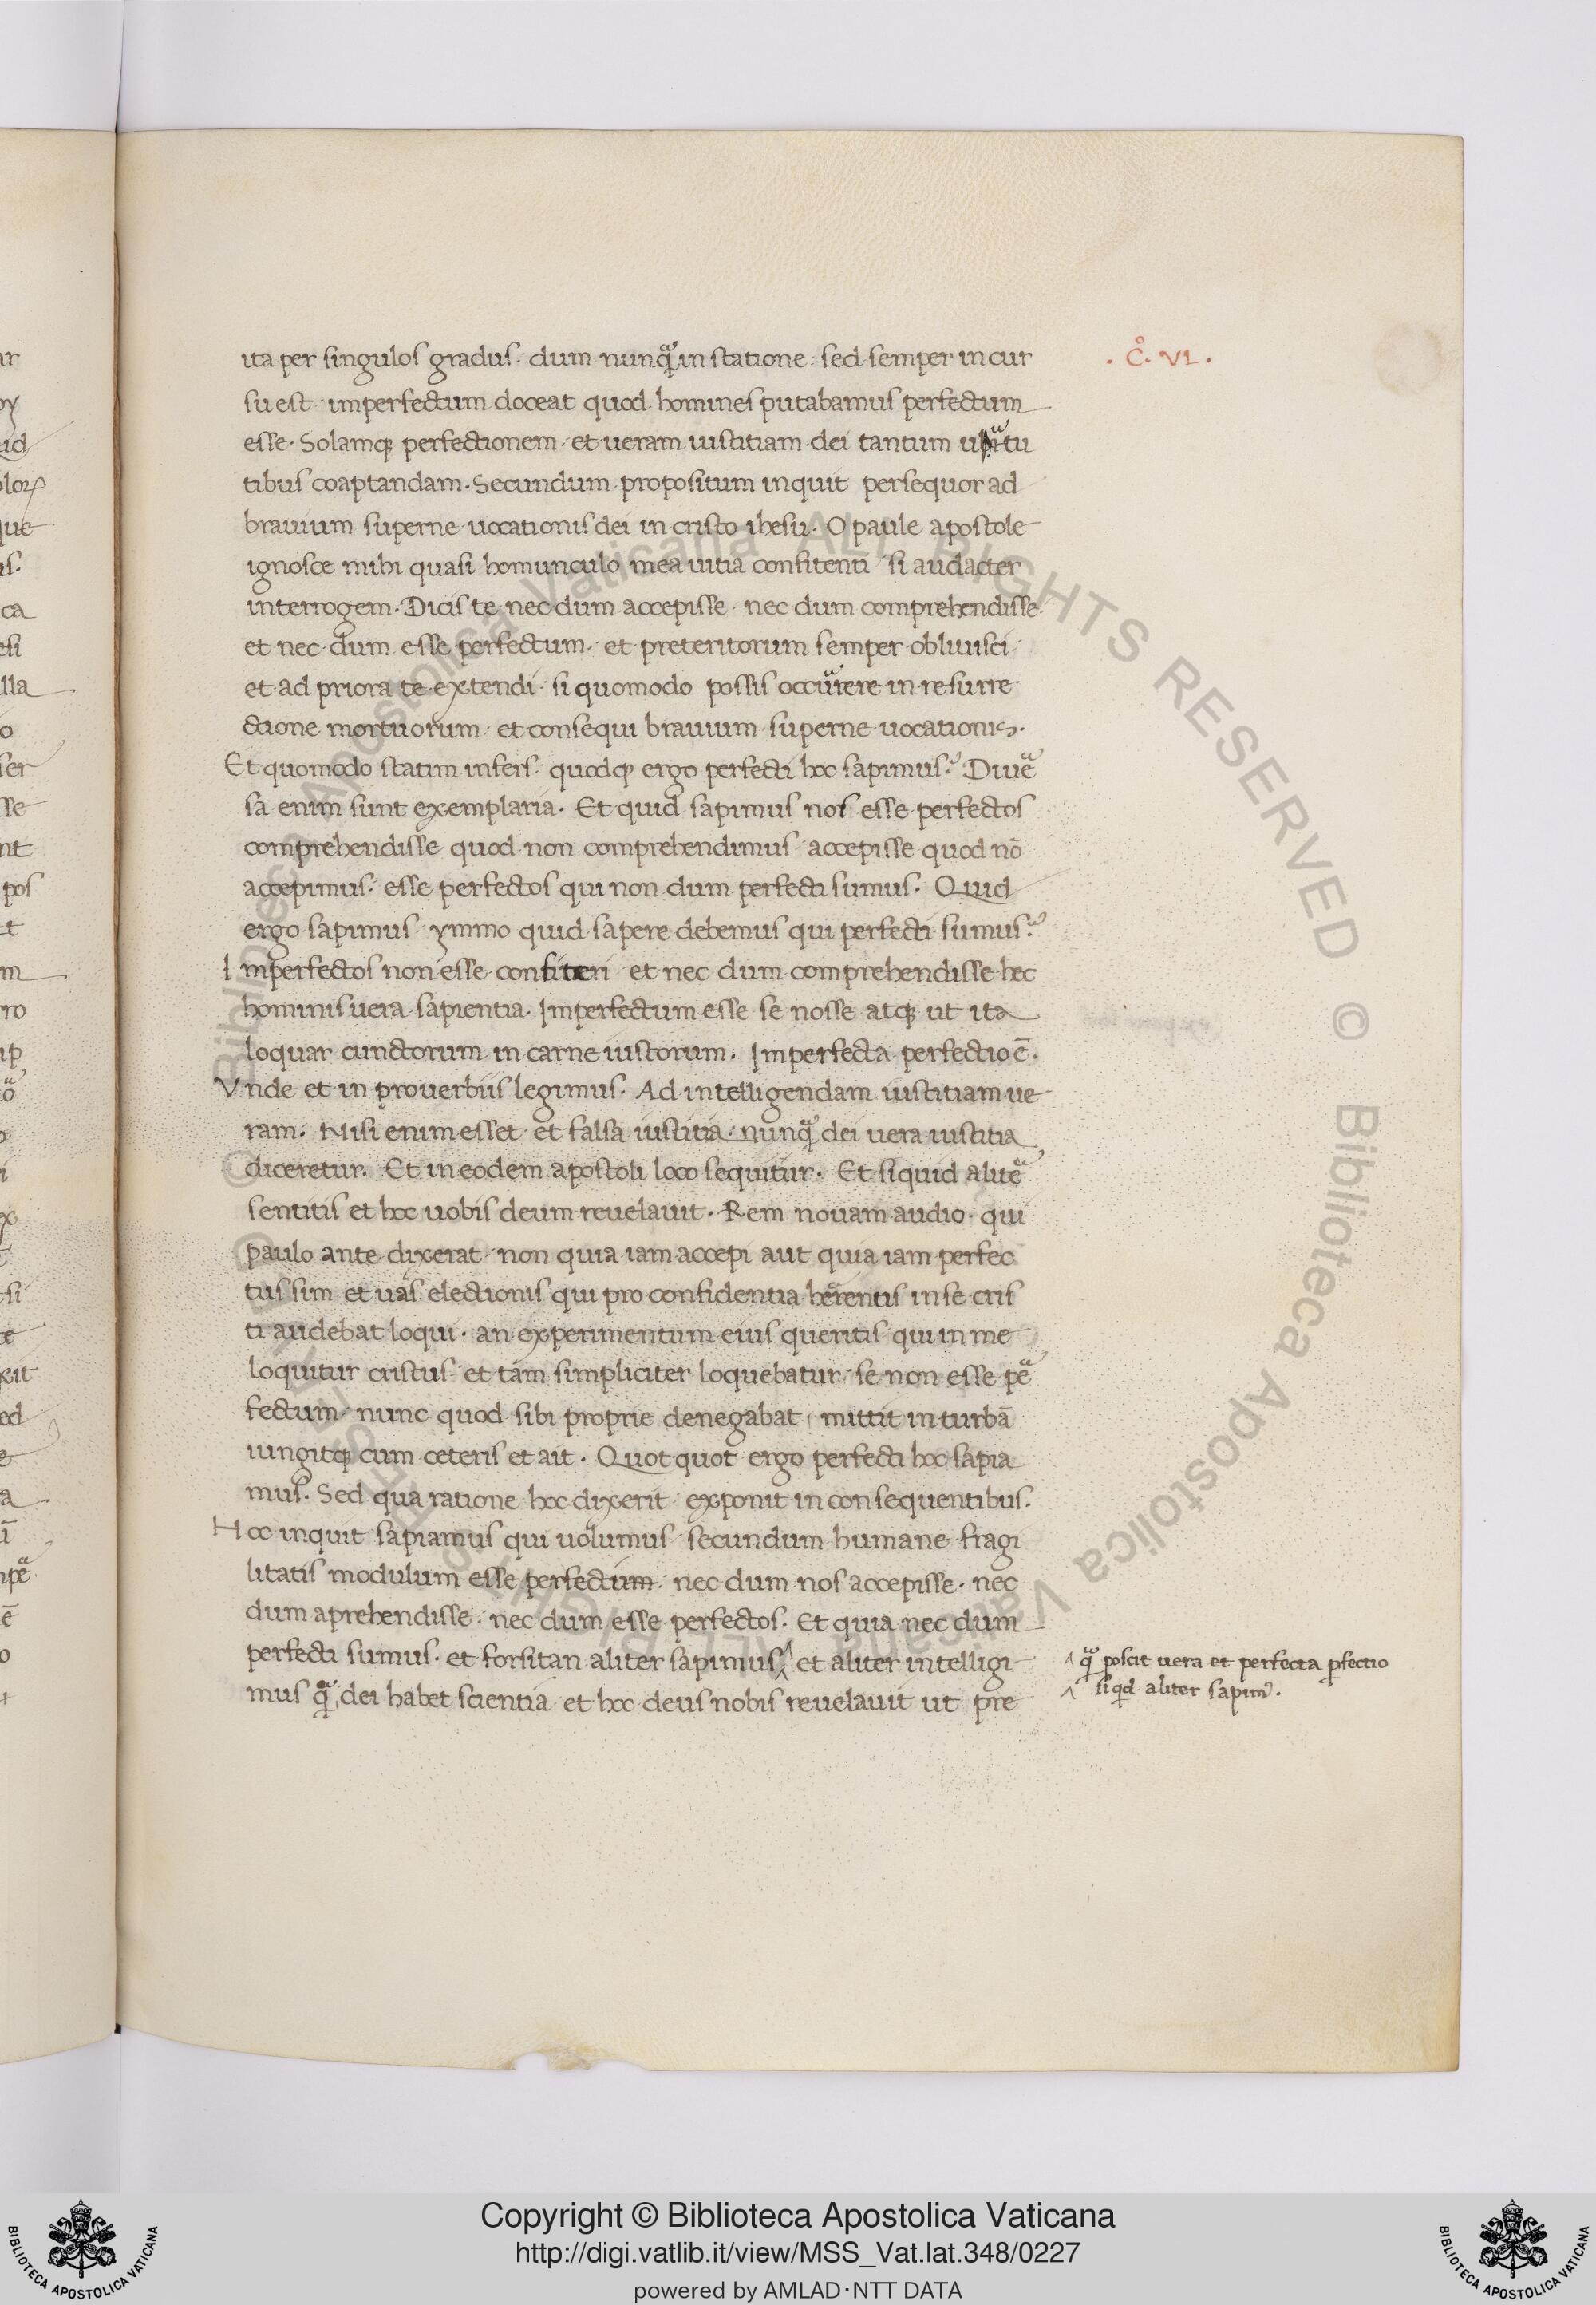 ita per singulos gradus. dum nunqᷓ in statione. sed semper in cur
. C̊. VI.
su est. imperfectum doceat quod homines putabamus perfectum
esse. Solamqꝫ perfectionem. et ueram iustitiam dei tantum
tibus coaptandam. Secundum propositum inquit persequor ad
brauium superne uocationis dei in cristo ihesu. O paule apostole
ignosce mihi quasi homunculo mea uitia confitenti si audacter
interrogem. Dicis te nec dum accepisse. nec dum comprehendisse
et nec dum esse perfectum. et preteritorum semper obliuisci
et ad priora te extendi. si quomodo possis occurrere in resurre
ctione mortuorum. et consequi brauium superne uocationis.
Et quomodo statim infers. quodqꝫ ergo perfecti hoc sapimus? Diuẽ
sa enim sunt exemplaria. Et quid sapimus nos esse perfectos
comprehendisse quod non comprehendimus accepisse quod nō
accepimus. esse perfectos qui non dum perfecti sumus. Quid
ergo sapimus ymmo quid sapere debemus qui perfecti sumus?
Imperfectos non esse confiteri et nec dum comprehendisse hec
hominis uera sapientia. Imperfectum esse se nosse atqꝫ ut ita
loquar cunctorum in carne iustorum. Imperfecta perfectio ē.
Vnde et in prouerbiis legimus. Ad intelligendam iustitiam ue
ram. Nisi enim esset et falsa iustitia. nunqᷓ dei uera iustitia
diceretur. Et in eodem apostoli loco sequitur. Et siquid alitẽ
sentitis et hoc uobis deum reuelauit. Rem nouam audio. qui
paulo ante dixerat non quia iam accepi aut quia iam perfec
tus sim et uas electionis qui pro confidentia herentis in se cris
ti audebat loqui. an experimentum eius queritis qui in me
loquitur cristus et tam simpliciter loquebatur se non esse pẽ
fectum nunc quod sibi proprie denegabat mittit in turbā
iungitqꝫ cum ceteris et ait. Quot quot ergo perfecti hoc sapia
mus. Sed qua ratione hoc dixerit exponit in consequentibus.
Hoc inquit sapiamus qui uolumus secundum humane fragi
litatis modulum esse perfectum. nec dum nos accepisse. nec
dum aprehendisse. nec dum esse perfectos. Et quia nec dum
perfecti sumus. et forsitan aliter sapimus ^ et aliter intelligi
mus qᷓ dei habet scientia et hoc deus nobis reuelauit ut pre
^ qᷓ poscit uera et perfecta ꝑfectio
^ si qd aliter sapimꝰ.
Copyright © Biblioteca Apostolica Vaticana
http://digi.vatlib.it/view/MSS_Vat.lat.348/0227
powered by AMLAD·NTT DATA